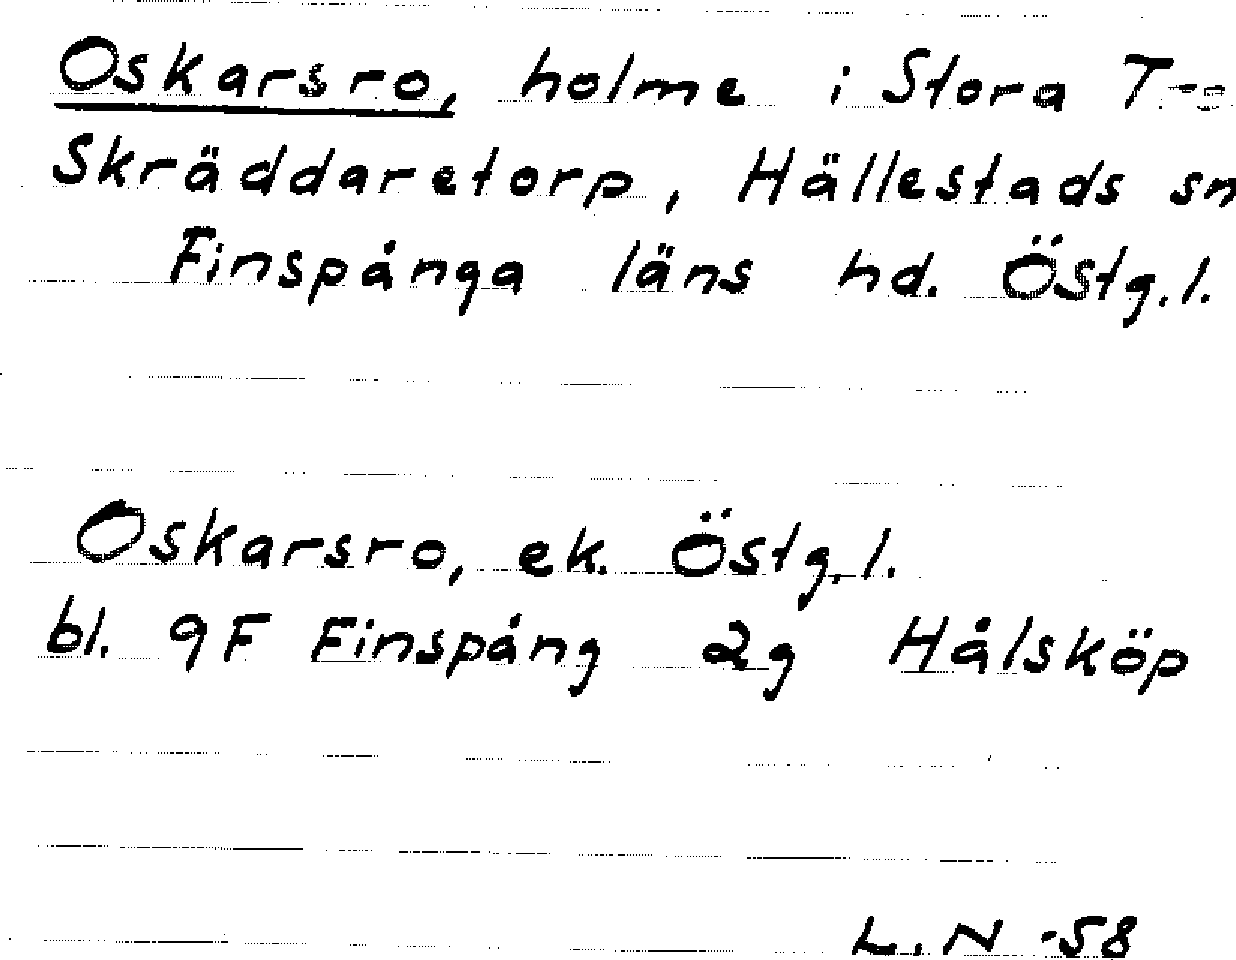 Oskarsro, holme i Stora
Skräddaretorp, Hällestads sn
Finspånga läns hd. Östg.l.
Oskarsro, ek. Östg.l.
bl. 9F Finspång 2g Hålsköp
L.N -58